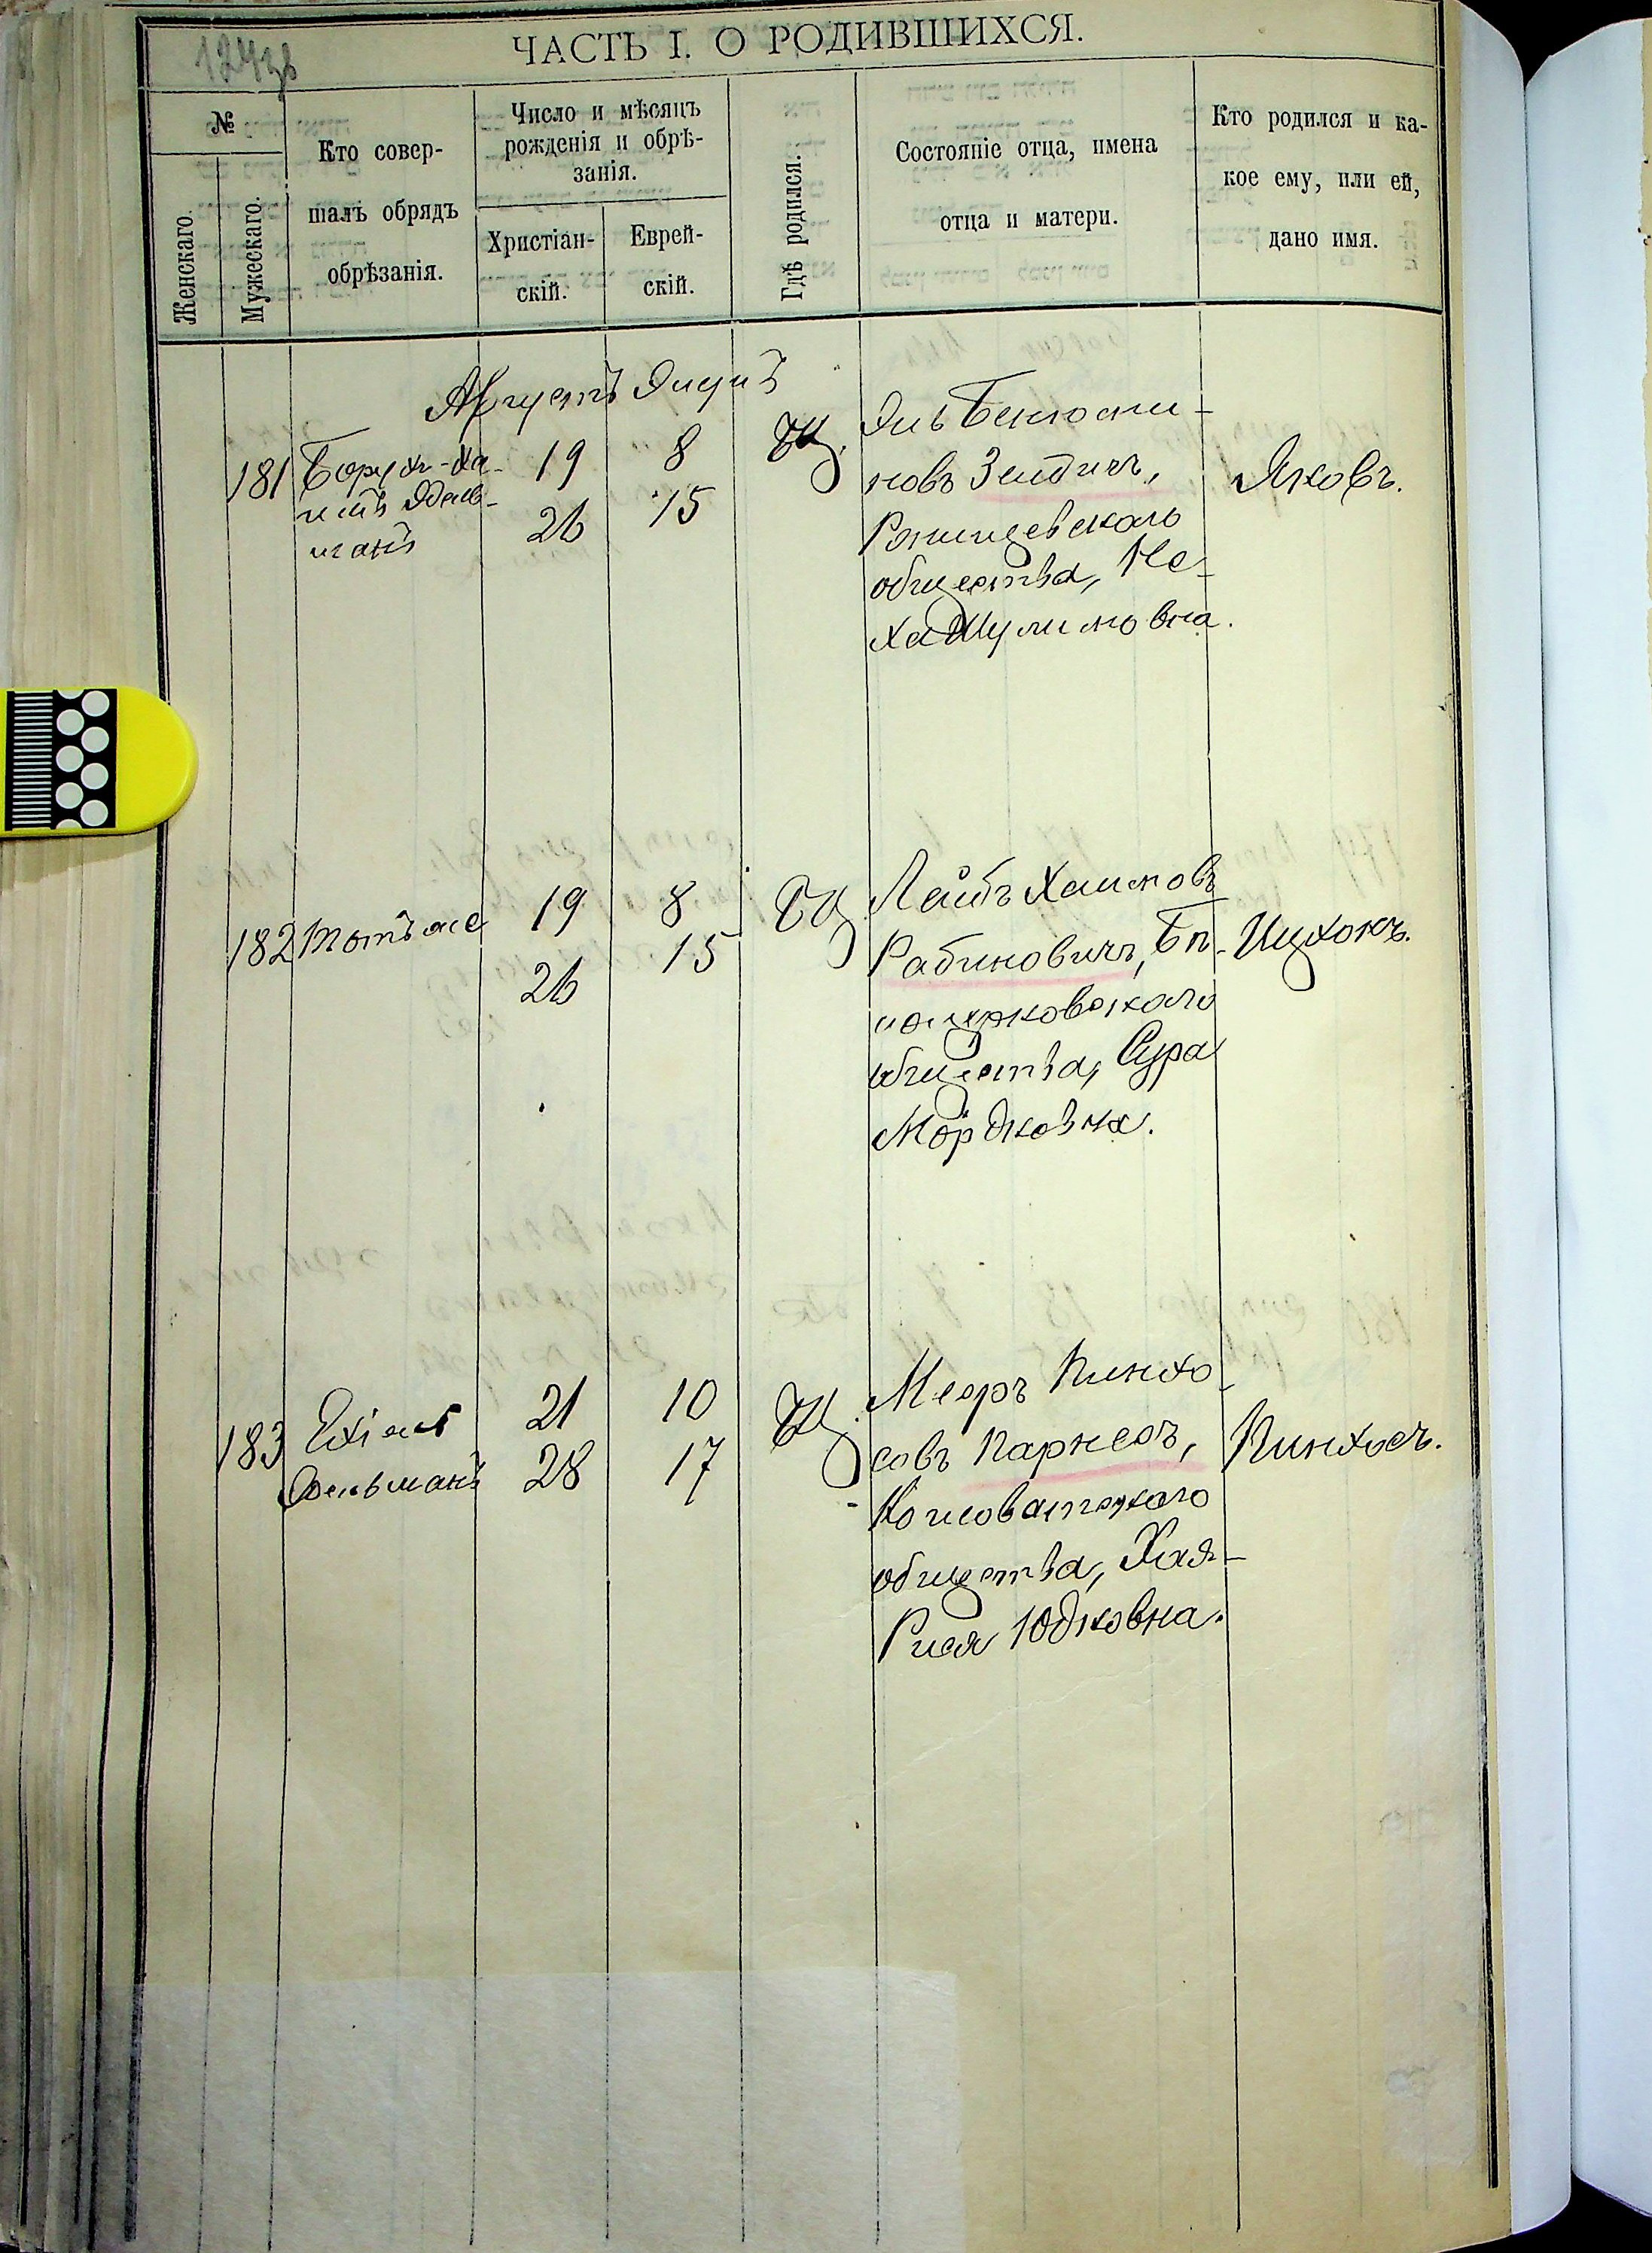 124зв
ЧАСТЬ I. О РОДИВШИХСЯ.
№
Женскаго.
Мужескаго.
Кто совер-
шалъ обрядъ
обрѣзанія.
Число и мѣсяцъ
рожденія и обрѣ-
занія.
Христіан-
скій.
Еврей-
скій.
Гдѣ родился.
Состояніе отца, имена
отца и матери.
Кто родился и ка-
кое ему, или ей,
дано имя.
Августъ Элулъ
181
Борухъ-Ха-
имъ Эдель-
манъ
19
26
8
15
Эль Бенюми-
новъ Зейдичъ,
Ржищевскаго
общества, Не-
ха Шулимовна.
Яковъ.
182
Тотъ же
19
26
8
15
Лейбъ Хаимовъ
Рабиновичъ, Бѣ-
лоцерковскаго
общества, Сура
Мордковна.
Ицхокъ.
183
Эдельманъ
21
28
10
17
Мееръ Пинхо-
совъ Парнесъ,
Кошоватскаго
общества, Хая-
Рися Юдковна.
Пинхосъ.